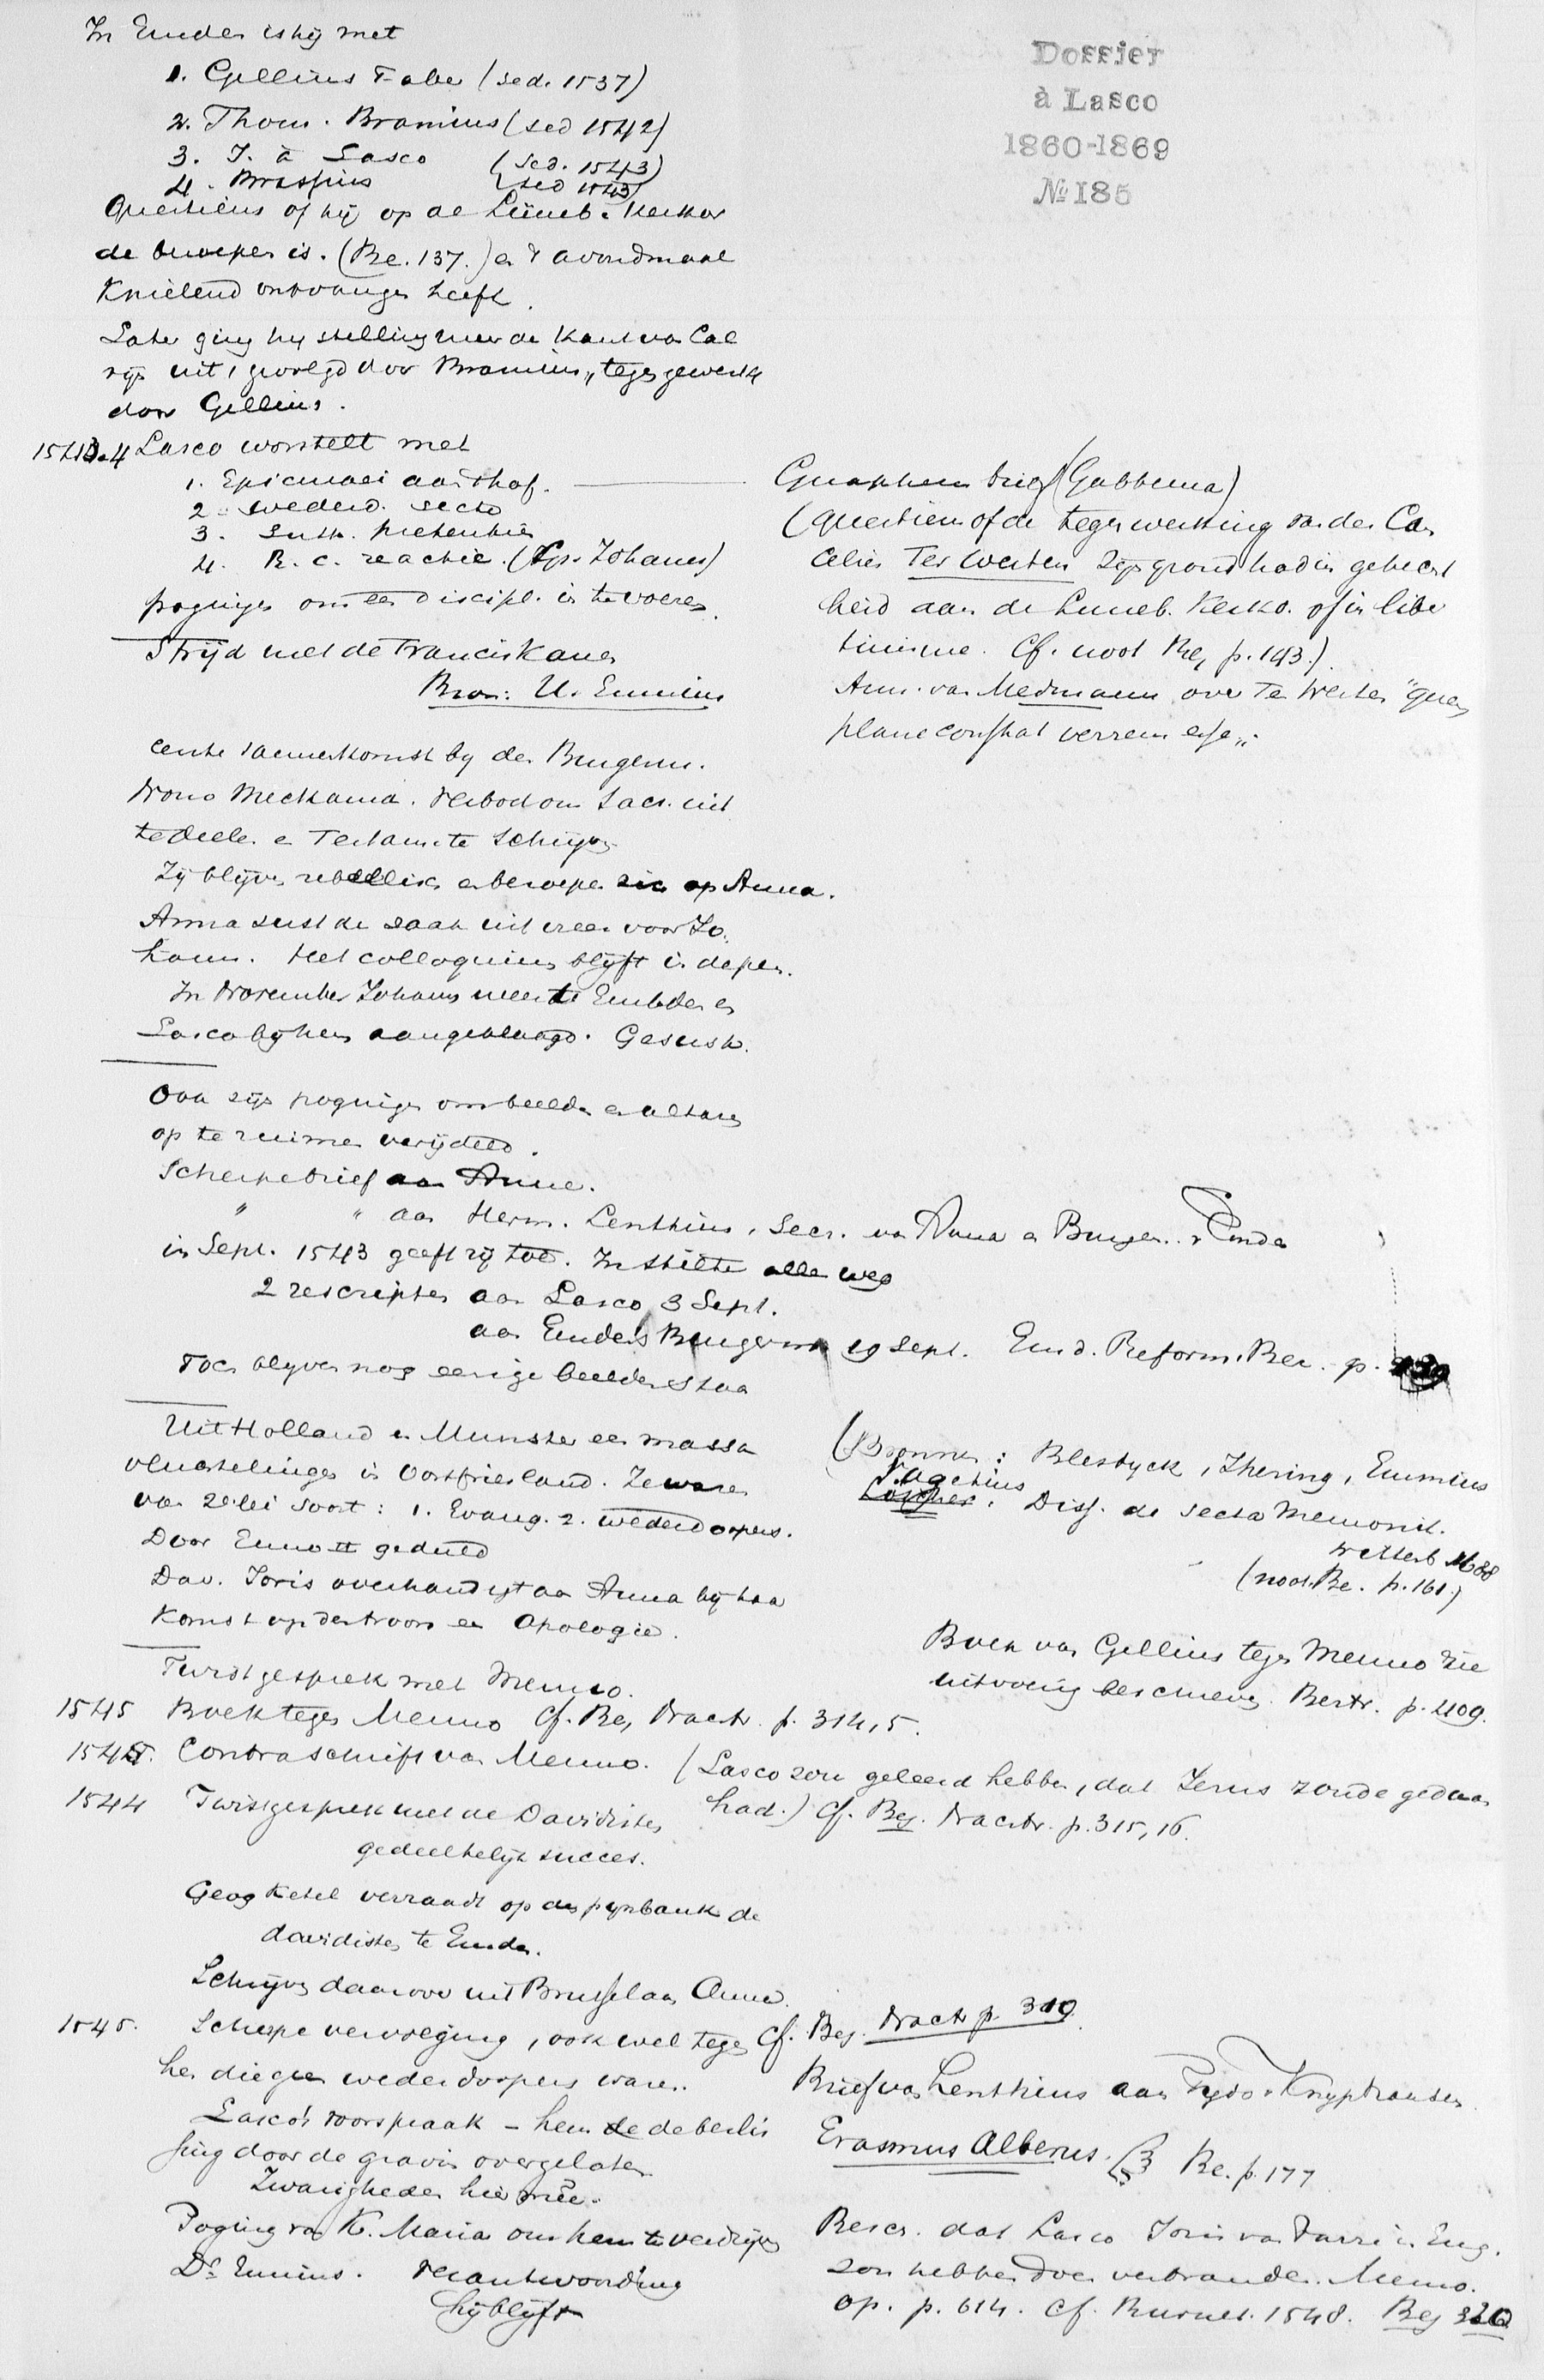 Dossier
à Lasco
1860-1869
No 185
In Emden is hij met
1. Gellius Faber (sed. 1537)
2. Thom. Bramius (sed 1542)
3. J. à Lasco (sed. 1543)
4. Brassius (sed 1543)
Questieus of hij op de Lüneb. Kerkor
de beroepen is. (Be. 137.) en 't avondmaal
Knielend ontvangen heeft.
Later ging hij stellig meer de kant van Cal
vijn uit, gevolgd door Bramius, tegengewerkt
door Gellius.
1543.4 Lasco worstelt met
1. Epicureei aan 't hof.
2. wederd. secte
3. Luth. pretentie
4. R. c. reactie. (Gr. Johannes)
pogingen om een discipl. in te voeren.
Strijd met de Franciskaner
Bron: U. Emmius
Gnapheus brief (Gabbema)
(Questieus of de tegenwerking van den Can
celier Ter Westen zijn grond had in gehecht
heid aan de Luneb. Kerko. of in libe
tinisme. Cf. noot Be, p. 143.)
Ann. van Medmann over Ter Westen "quem
plane constat verrem esse".
eerste samenkomst by den Burgem.
Drono Meckama. Verbod om Sacr. uit
te deelen en Testam. te schrijven
Zij blijven rebellisch en beroepen zich op Anna.
Anna sust de zaak uit vrees voor Jo.
hann. Het colloquium blijft in depen.
In November Johans weer te Embden en
Lasco bij hem aangeklaagd. Gesust.
Ook zijn pogingen om beelden en altaren
op te ruimen verijdeld.
Scherpe brief aan Anna.
" " aan Herm. Lenthius, Secr. van Anna en Burgem. v. Emden
in Sept. 1543 geeft zij toe. In stilte alle weg
2 rescripten aan Lasco 3 Sept.
aan Emdens Burgerm 19 Sept. Emd. Reform. Ber. p.
Toch blijven nog eenige beelden staan
Uit Holland en Munster een massa
vluchtelingen in Oostfriesland. Ze waren
van 2erlei soort: 1. Evang. 2. wederdoopers.
Door Enno II geduld
Dav. Joris overhandigt aan Anna bij haar
komst op den troon een Apologie.
(Bronnen: Blesdyck, Ihering, Emmius
Fagetius
Diss. de secta Memonit.
Wittenb 1688
(noot Be. p. 161)
Twistgesprek met Menno.
Boek van Gellius tegen Menno zie
uitvoerig beschreven. Bertr. p. 409.
1545 Boek tegen Menno Cf. Be, Nachtr. p. 314,5.
1545. Contraschrift van Menno. (Lasco zou geleerd hebben, dat Jezus zonde gedaan
had.) Cf. Be. Nachtr. p. 315, 16.
1544 Twistgesprek met de Davidisten
gedeeltelijk succes.
Georg Ketel verraadt op de pijnbank de
davidisten te Emden.
Schrijven daarover uit Brussel aan Anna.
1545. Scherpe vervolging, ook wel tegen Cf. Be. Nachtr p. 319.
hen die geen wederdoopers waren.
Lasco's voorspraak - hem de beslis
sing door de gravin overgelaten
Zwarigheden hiermee.
Brief van Lenthius aan Tydo v. Knyphausen.
Erasmus Alberus. Be. p. 177
Poging van K. Maria om hem te verdrijven
Dr Emmius. Verantwoording
hij blijft
Besch. dat Lasco Joris van Parris in Eng.
zou hebben doen verbranden. Menno.
op. p. 614. Cf. Burnet. 1548. Be 320